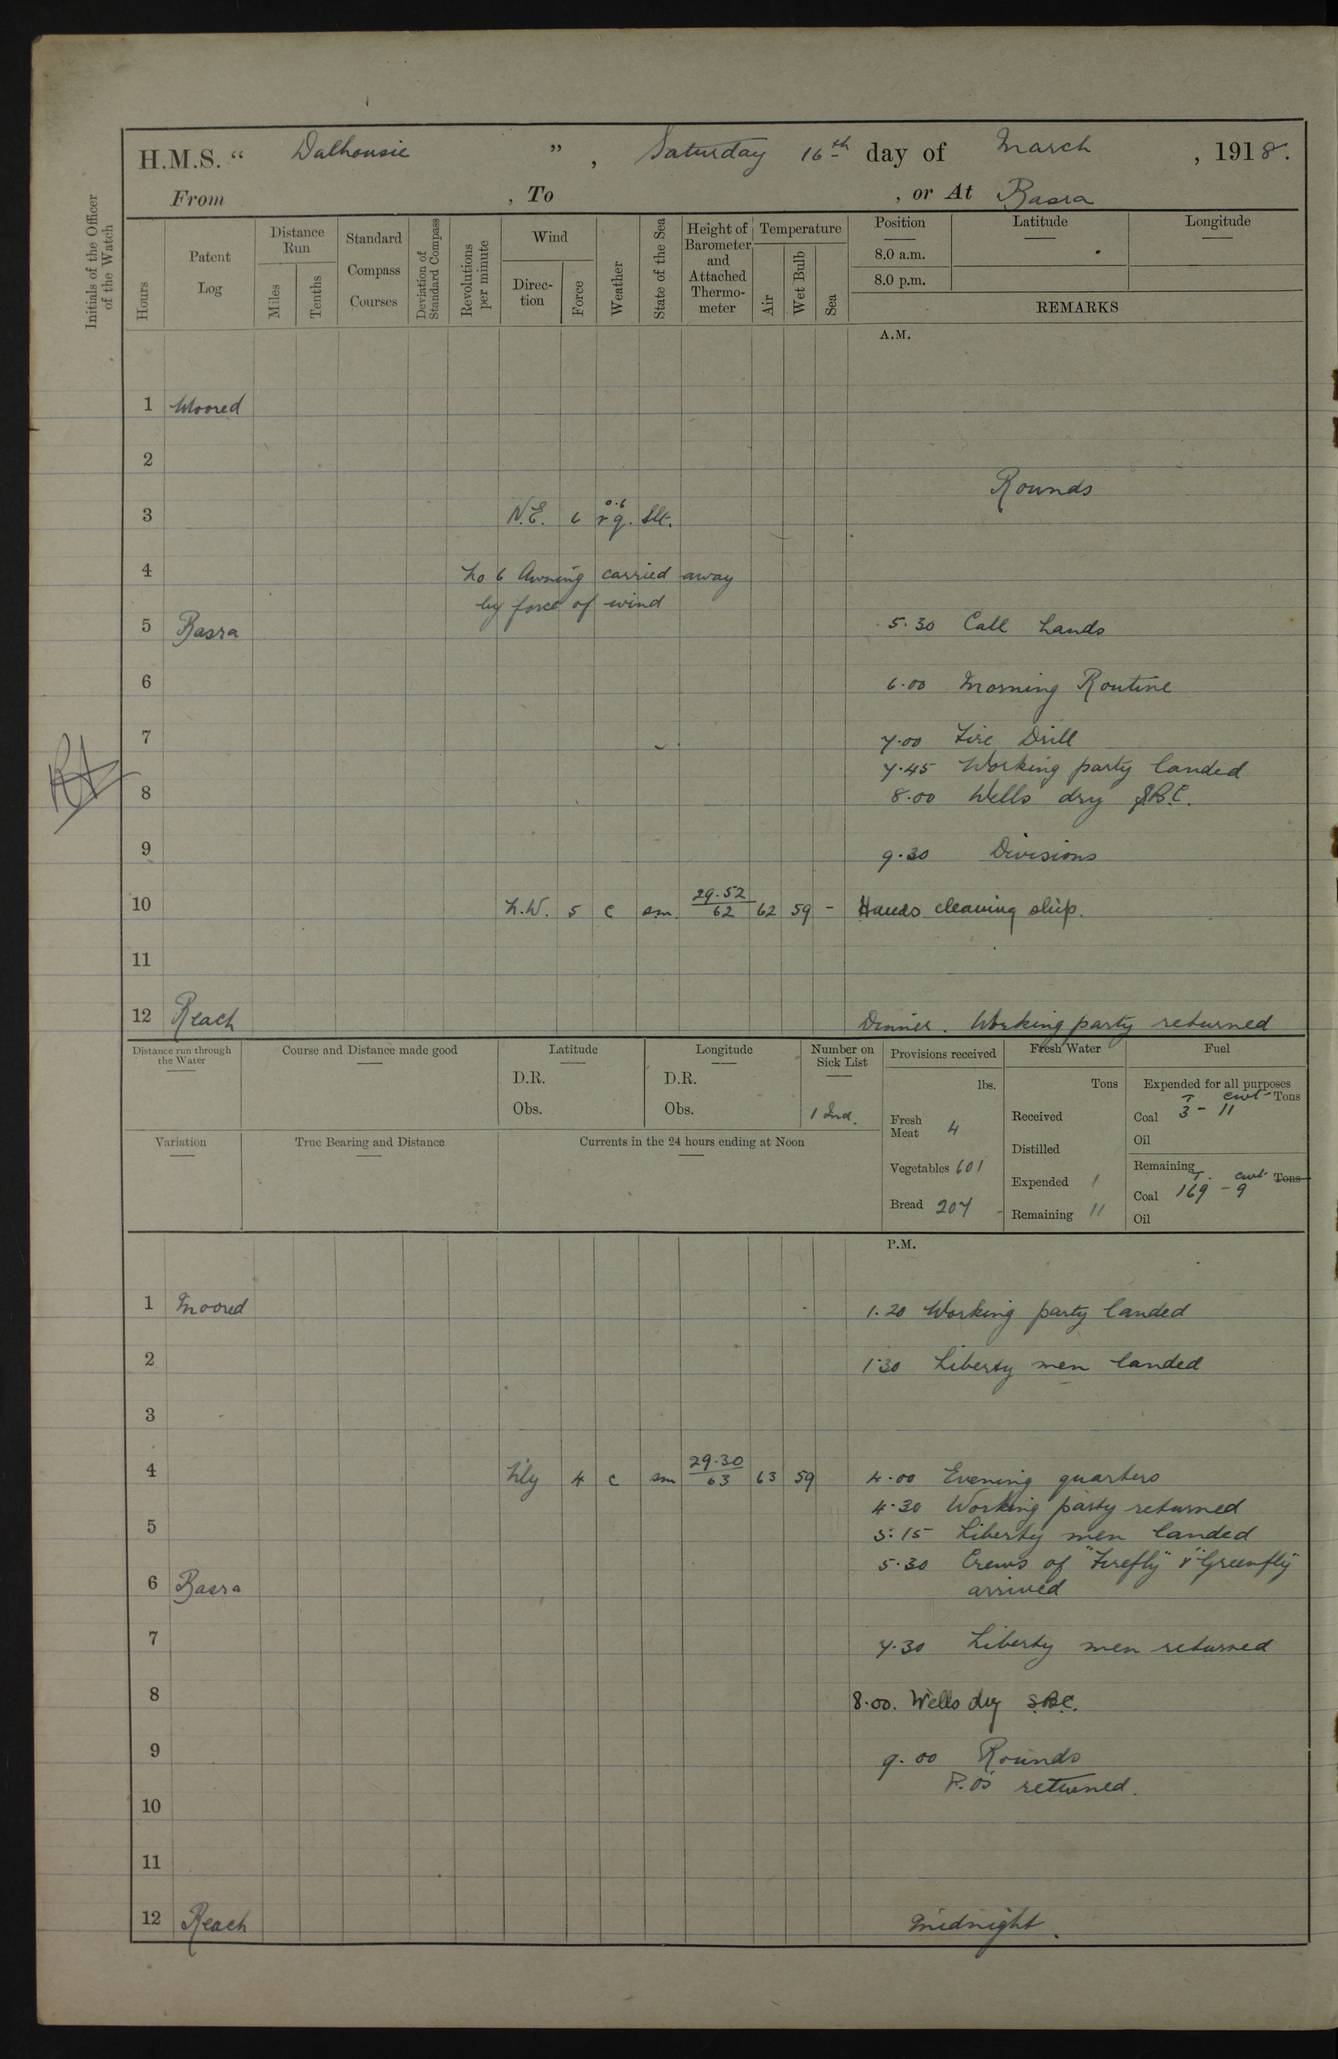 H.M.S. “ Dalhousie ” , Saturday 16th day of March , 1918.
From , To , or At Basra
Initials of the Officer of the Watch
Hours
Patent Log
Distance Run
Miles
Tenths
Standard Compass Courses
Deviation of Standard Compass
Revolutions per minute
Wind
Direction
Force
Weather
State of the Sea
Height of Barometer and Attached Thermometer
Temperature
Air
Wet Bulb
Sea
Position
Latitude
Longitude
8.0 a.m.
8.0 p.m.
REMARKS
A.M.
1 Moored
2
Rounds
3 N.E. 6 r q. Slt.
4 No 6 Awning carried away
by force of wind
5 Basra 5.30 Call hands
6 6.00 Morning Routine
7 7.00 Fire Drill
7.45 Working party landed
8 8.00 Wells dry
9 9.30 Divisions
10 N.W. 5 c sm. 29.52 62 62 59 - Hands cleaning ship.
11
12 Reach Dinner. Working party returned
Distance run through the Water
Course and Distance made good
Latitude
D.R.
Obs.
Longitude
D.R.
Obs.
Number on Sick List
1 Ind.
Provisions received
lbs.
Fresh Meat 4
Vegetables 601
Bread 207
Fresh Water
Tons
Received
Distilled
Expended 1
Remaining 11
Fuel
Expended for all purposes
T cwt Tons
Coal 3 - 11
Oil
Remaining
T. cwt Tons
Coal 169 - 9
Oil
Variation
True Bearing and Distance
Currents in the 24 hours ending at Noon
P.M.
1 Moored 1.20 Working party landed
2 1.30 Liberty men landed
3
4 N'ly 4 c sm 29.30 63 63 59 4.00 Evening quarters
4.30 Working party returned
5 5.15 Liberty men landed
5.30 Crews of "Firefly" & "Greenfly"
6 Basra arrived
7 7.30 Liberty men returned
8 8.00. Wells dry S.B.C.
9 9.00 Rounds
P.O's returned.
10
11
12 Reach Midnight.